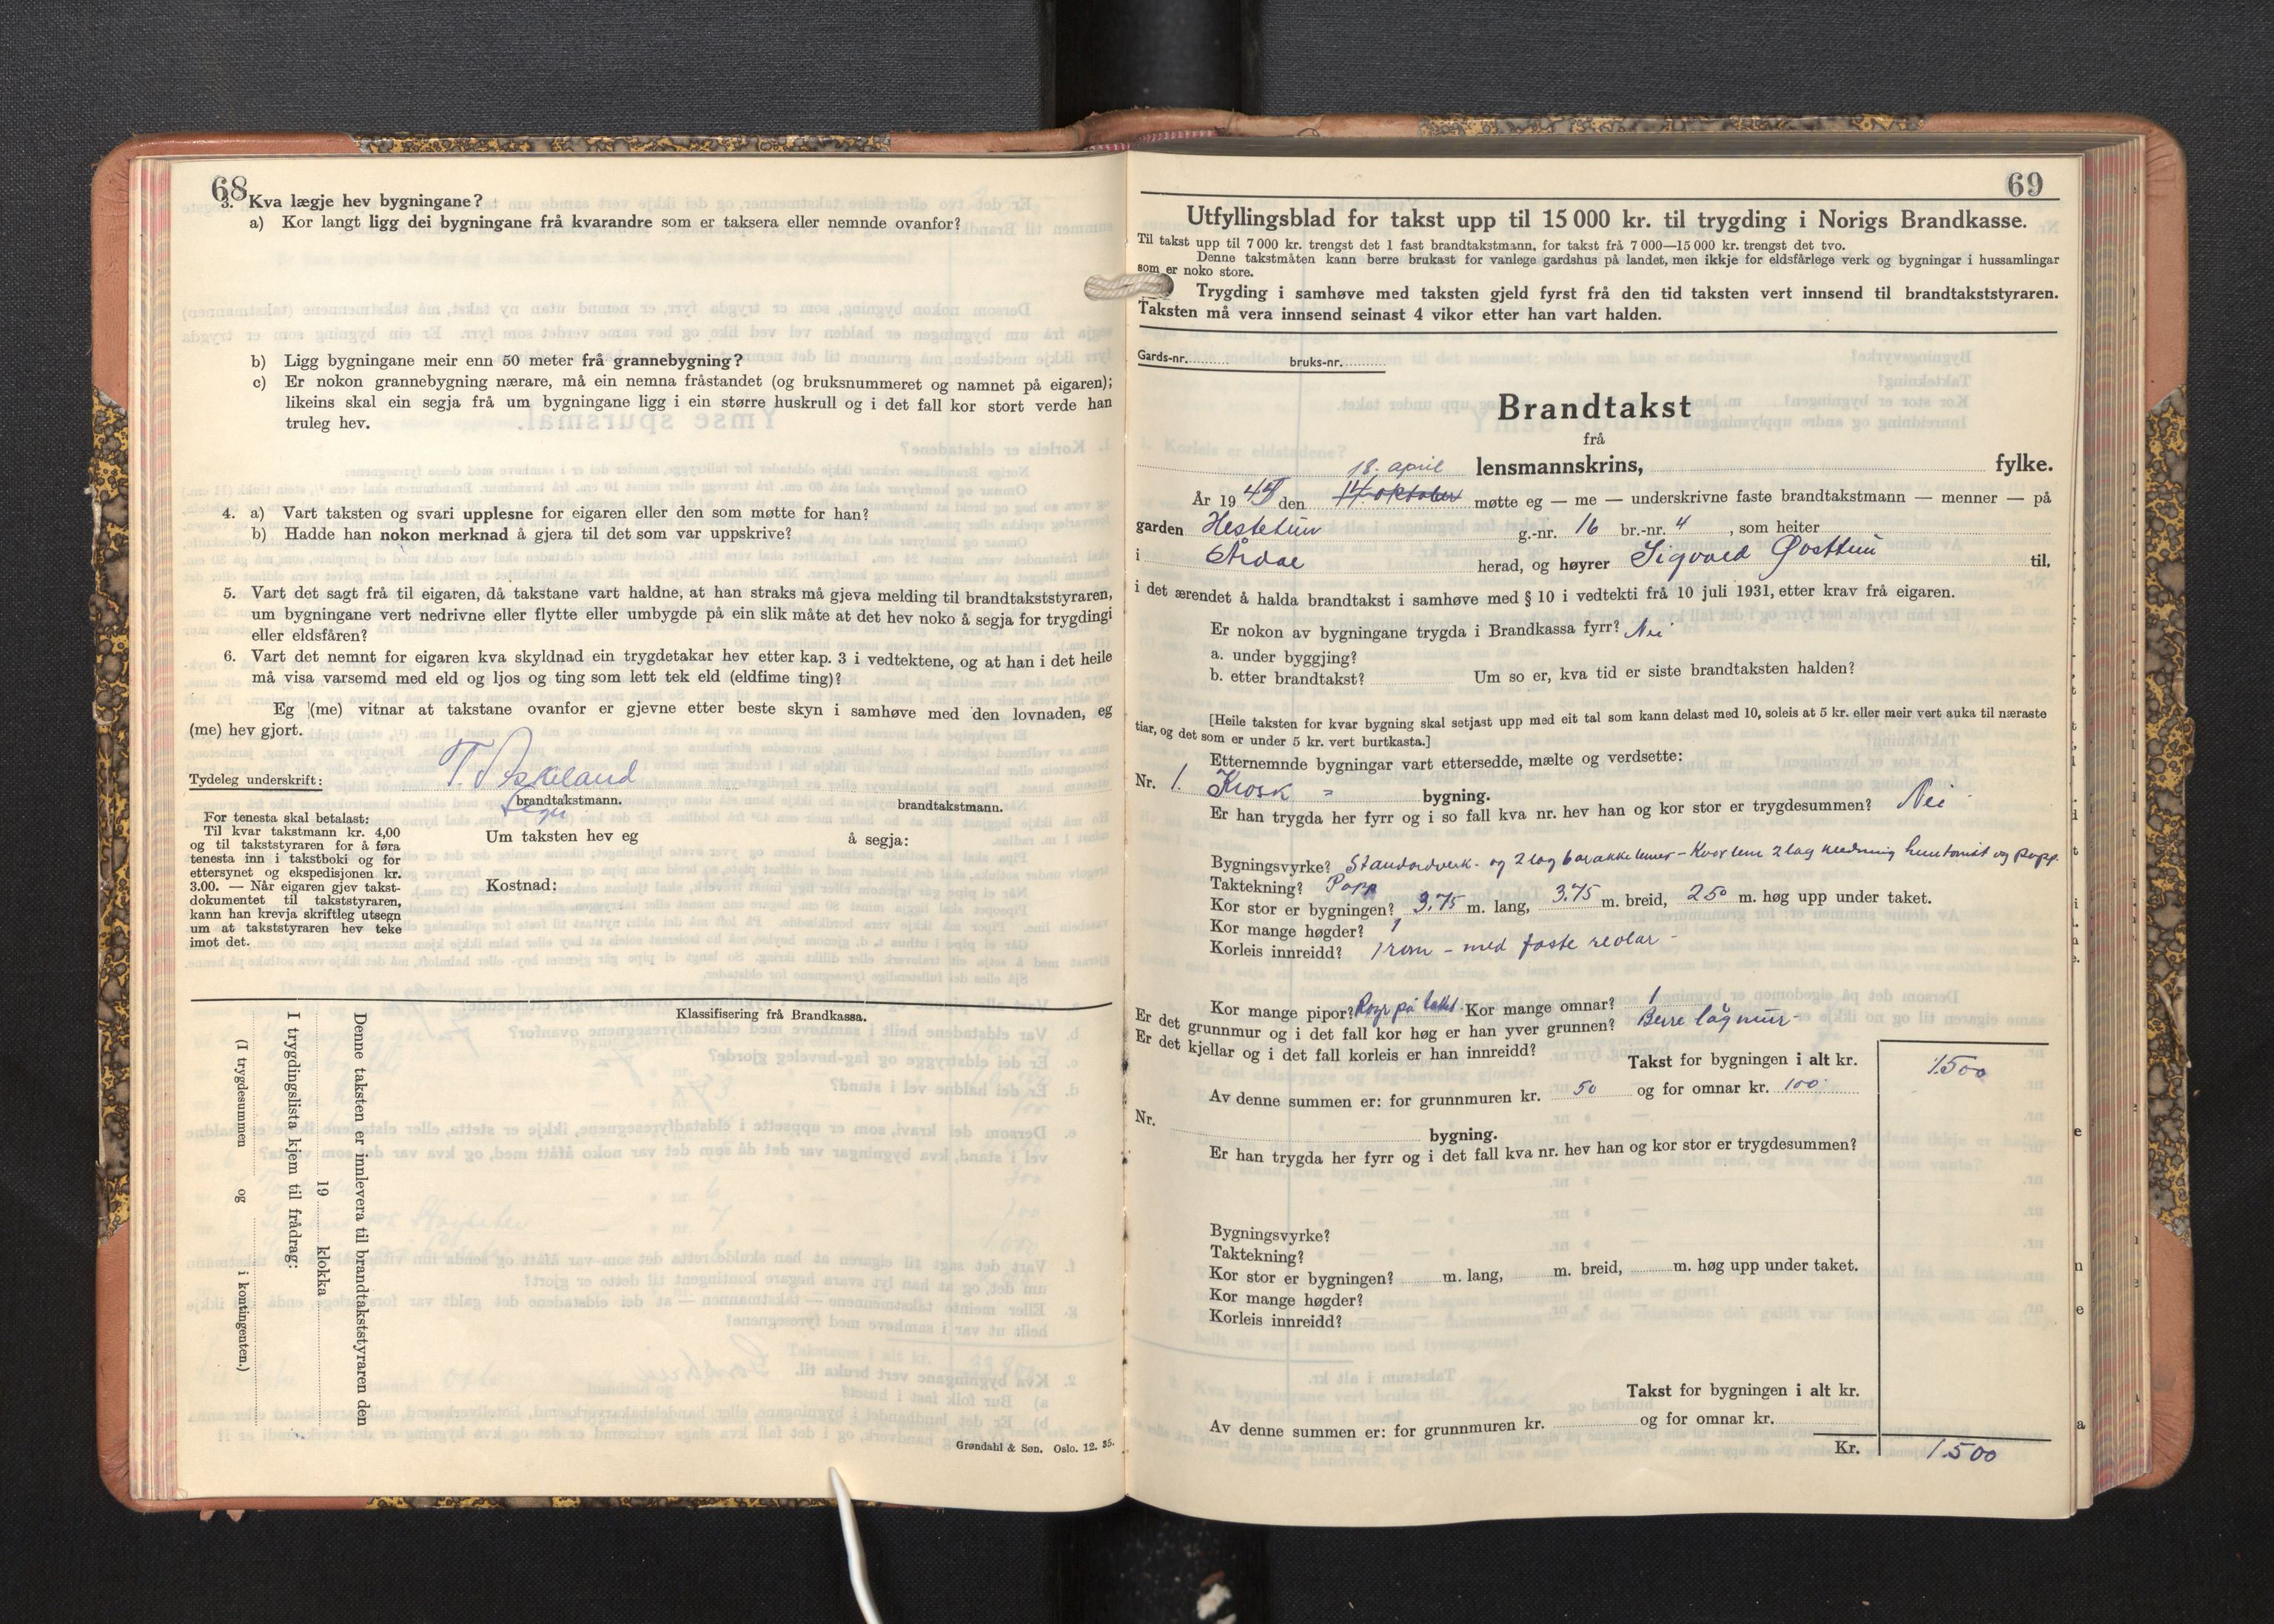 68
3. Kva lægje hev bygningane?
a) Kor langt ligg dei bygningane frå kvarandre som er taksera eller nemnde ovanfor?
b) Ligg bygningane meir enn 50 meter frå grannebygning?
c) Er nokon grannebygning nærare, må ein nemna fråstandet (og bruksnummeret og namnet på eigaren);
likeins skal ein segja frå um bygningane ligg i ein større huskrull og i det fall kor stort verde han
truleg hev.
4. a) Vart taksten og svari upplesne for eigaren eller den som møtte for han?
b) Hadde han nokon merknad å gjera til det som var uppskrive?
5. Vart det sagt frå til eigaren, då takstane vart haldne, at han straks må gjeva melding til brandtakststyraren,
um bygningane vert nedrivne eller flytte eller umbygde på ein slik måte at det hev noko å segja for trygdingi
eller eldsfåren?
6. Vart det nemnt for eigaren kva skyldnad ein trygdetakar hev etter kap. 3 i vedtektene, og at han i det heile
må visa varsemd med eld og ljos og ting som lett tek eld (eldfime ting)?
Eg (me) vitnar at takstane ovanfor er gjevne etter beste skyn i samhøve med den lovnaden, eg
(me) hev gjort.
Tydeleg underskrift: T. Askeland
brandtakstmann. brandtakstmann.
For tenesta skal betalast:
Til kvar takstmann kr. 4,00
og til takststyraren for å føra
tenesta inn i takstboki og for
ettersynet og ekspedisjonen kr.
3.00. — Når eigaren gjev takst-
dokumentet til takststyraren,
kann han krevja skriftleg utsegn
um at takststyraren hev teke
imot det.
Um taksten hev eg å segja:
Kostnad:
Klassifisering frå Brandkassa.
Denne taksten er innlevera til brandtakststyraren den
19 klokka
I trygdingslista kjem til frådrag:
(I trygdesummen og i kontingenten.)
Grøndahl & Søn. Oslo. 12. 35.
69
Utfyllingsblad for takst upp til 15 000 kr. til trygding i Norigs Brandkasse.
Til takst upp til 7 000 kr. trengst det 1 fast brandtakstmann, for takst frå 7 000—15 000 kr. trengst det tvo.
Denne takstmåten kann berre brukast for vanlege gardshus på landet, men ikkje for eldsfårlege verk og bygningar i hussamlingar
som er noko store.
Trygding i samhøve med taksten gjeld fyrst frå den tid taksten vert innsend til brandtakststyraren.
Taksten må vera innsend seinast 4 vikor etter han vart halden.
Gards-nr. bruks-nr.
Brandtakst
frå
lensmannskrins, fylke.
18. april
År 19 den 14. oktober møtte eg — me — underskrivne faste brandtakstmann — menner — på
garden Hestetun g.-nr. 16 br.-nr. 4, som heiter
i Årdal herad, og høyrer Sigvald Østtun til,
i det ærendet å halda brandtakst i samhøve med § 10 i vedtekti frå 10 juli 1931, etter krav frå eigaren.
Er nokon av bygningane trygda i Brandkassa fyrr? Nei
a. under byggjing?
b. etter brandtakst? Um so er, kva tid er siste brandtaksten halden?
[Heile taksten for kvar bygning skal setjast upp med eit tal som kann delast med 10, soleis at 5 kr. eller meir vert auka til næraste
tiar, og det som er under 5 kr. vert burtkasta.]
Etternemnde bygningar vart ettersedde, mælte og verdsette:
Nr. 1. Kiosk = bygning.
Er han trygda her fyrr og i so fall kva nr. hev han og kor stor er trygdesummen? Nei
Bygningsvyrke? Standardverk. og 2 lag barakkelemer - Kvar lem 2 lag kledning huntonit og papp.
Taktekning? Papp
Kor stor er bygningen? 3,75 m. lang, 3,75 m. breid, 2,50 m. høg upp under taket.
Kor mange høgder? 1
Korleis innreidd? 1 rom - med faste reolar -
Kor mange pipor? Røyr på taket. Kor mange omnar? 1
Er det grunnmur og i det fall kor høg er han yver grunnen? Berre lågmur-
Er det kjellar og i det fall korleis er han innreidd?
Takst for bygningen i alt kr. 1.500
Av denne summen er: for grunnmuren kr. 50 og for omnar kr. 100
Nr. bygning.
Er han trygda her fyrr og i det fall kva nr. hev han og kor stor er trygdesummen?
Bygningsvyrke?
Taktekning?
Kor stor er bygningen? m. lang, m. breid, m. høg upp under taket.
Kor mange høgder?
Korleis innreidd?
Takst for bygningen i alt kr.
Av denne summen er: for grunnmuren kr. og for omnar kr.
Kr. 1.500